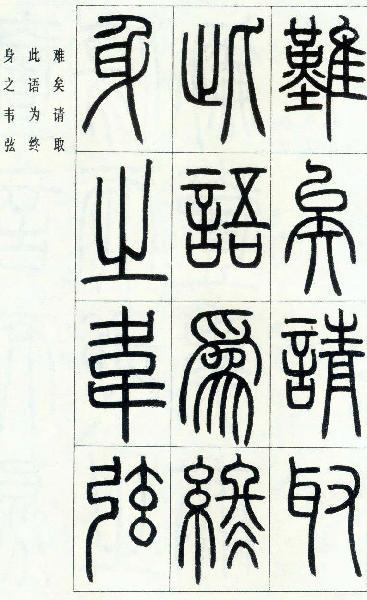 難矣請取
此語為終
身之韋弦
难矣请取
此语为终
身之韦弦